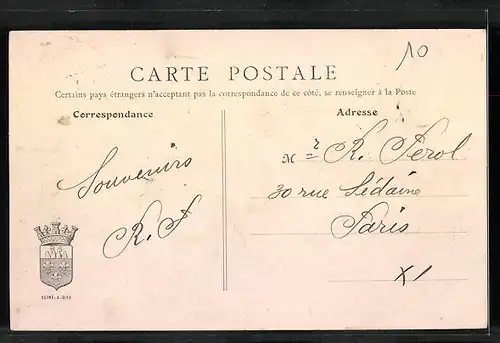 10
CARTE POSTALE
Certains pays étrangers n'acceptant pas la correspondance de ce côté, se renseigner à la Poste
Correspondance
Souvenirs
R. F
Adresse
Mr R. Férol
30 rue Sédaine
Paris
XI